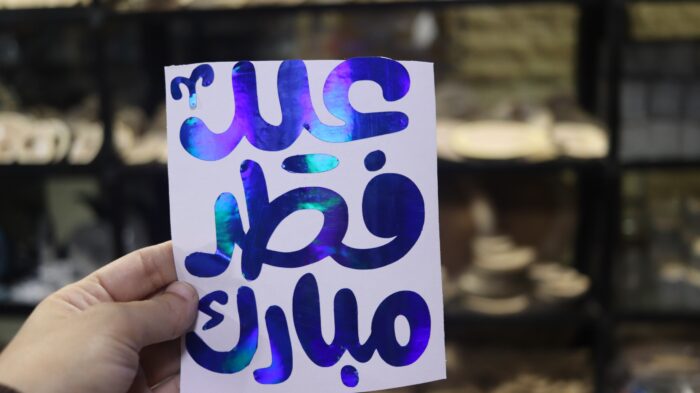 عيد
فطر
مبارك